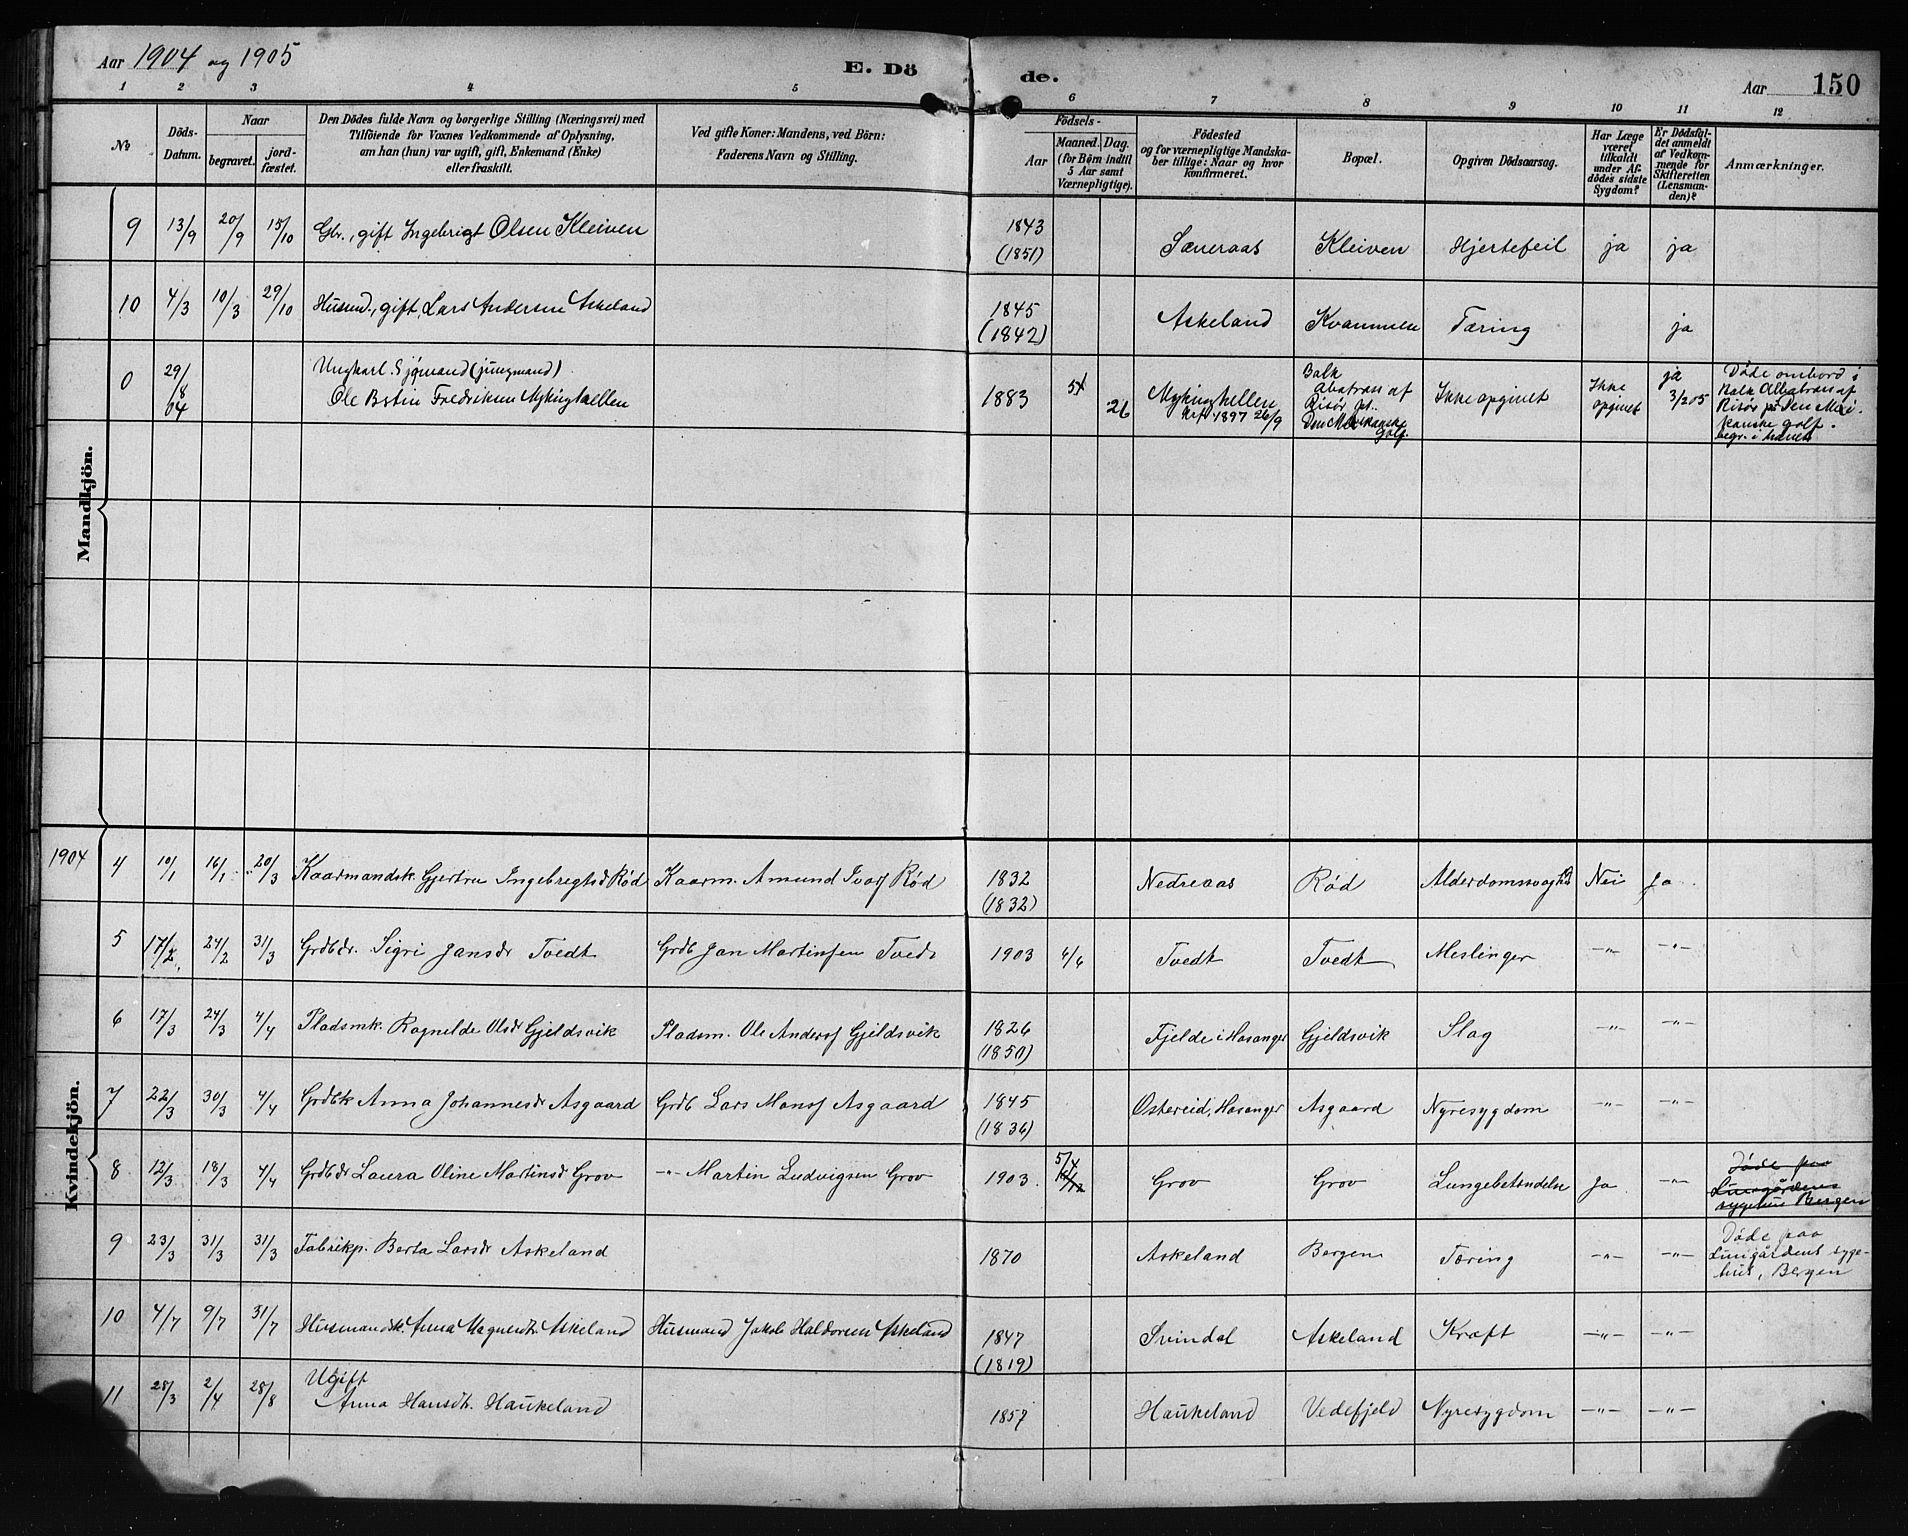 Aar 1904 og 1905
E. Dö de.
Aar 150
1 2 3 4 5 6 7 8 9 10 11 12
No
Döds-Datum.
Naar
begravet.
jord-fæstet.
Den Dödes fulde Navn og borgerlige Stilling (Næringsvei) med
Tilföiende for Voxnes Vedkommende af Oplysning,
om han (hun) var ugift, gift, Enkemand (Enke)
eller fraskilt.
Ved gifte Koner: Mandens, ved Börn:
Faderens Navn og Stilling.
Födsels-
Aar
Maaned. Dag.
(for Börn indtil
5 Aar samt
Værnepligtige).
Födested
og for værnepligtige Mandska-
ber tillige: Naar og hvor
konfirmeret.
Bopæl.
Opgiven Dödsaarsag.
Har Læge
været
tilkaldt
under Af-
dödes sidste
Sygdom?
Er Dödsfal-
det anmeldt
af Vedkom-
mende for
Skifteretten
(Lensman-
den)?
Anmærkninger.
Mandkjön.
9 13/9 20/9 15/10 Gbr., gift Ingebrigt Olsen Kleiven 1843 (1851) Sæneraas Kleiven Hjertefeil ja ja
10 4/3 10/3 29/10 Husmd., gift, Lars Andersen Askeland 1845 (1842) Askeland Kvammen Tæring ja
0 29/8 04 Ungkarl. Sjömand (jungmand)
Ole Bstin Fredriksen Mykinghellen 1883 26 Mykinghellen
krf. 1897 26/9
Bark
Albatrass af
Risör
Den Meksikanske
golf.
Ikke opgivet
Ikke
opgivet
ja
3/2 05
Döde ombord i
Bark Albatrass af
Risör paa Den Mexi-
kanske golf.
begr. i havet
Kvindekjön.
1904 4 10/1 16/1 20/3 Kaarmandsk. Gjertru Ingebregtsd Rød Kaarm. Amund Ivars Rød 1832 (1832) Nedreaas Rød Alderdomssvaghed Nei Ja
5 17/2 24/2 31/3 Grdbdr. Sigri Jansdr Tvedt Grdb Jan Martinsen Tvedt 1903 6/6 Tvedt Tvedt Meslinger -"- -"-
6 17/3 24/3 4/4 Pladsmk. Ragnelde Olsdr Gjeldsvik Pladsm. Ole Anders Gjeldsvik 1826 (1850) Fjelde i Hosanger Gjeldsvik Slag -"- -"-
7 22/3 30/3 4/4 Grdbk Anna Johannesdr Asgaard Grdb Lars Mons Asgaard 1845 (1836) Ostereid, Hosanger Asgaard Nyresygdom -"- -"-
8 12/3 18/3 4/4 Grdbdr Laura Oline Martinsd Grov -"- Martin Ludvigsen Grov 1903 5/4 Grov Grov Lungebetændelse Ja -"- Döde paa
Lungårdens
sygehus Bergen
9 23/3 31/3 31/3 Fabrikp. Berta Larsdr Askeland 1870 Askeland Bergen Tæring -"- -"- Döde paa
Lungårdens syge-
hus, Bergen
10 4/7 9/7 31/7 Husmandsk. Anna Magnesdt. Askeland Husmand Jakob Haldorsen Askeland 1847 (1819) Svindal Askeland Kræft -"- -"-
11 28/3 2/4 28/8 Ugift
Anna Hansdt. Haukeland 1857 Haukeland Vedefjeld Nyresygdom -"- -"-